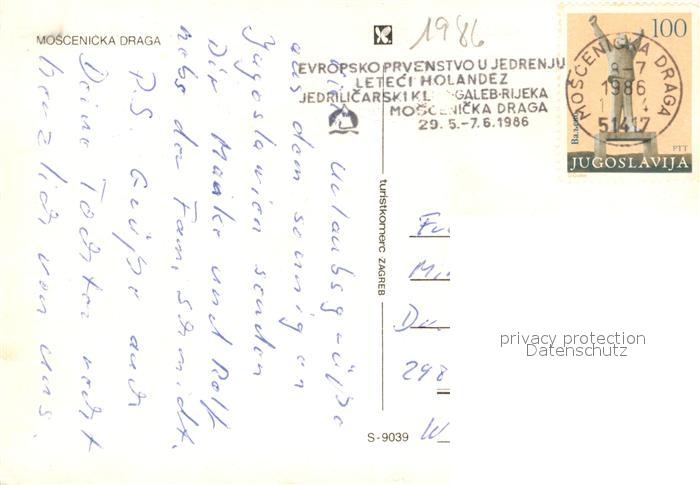 MOŠĆENIČKA DRAGA
1986
EVROPSKO PRVENSTVO U JEDRENJU
LETEĆI HOLANDEZ
JEDRILIČARSKI KL GALEB-RIJEKA
MOŠĆENIČKA DRAGA
29. 5.-7. 6. 1986
100
MOŠĆENIČKA DRAGA
8-7
1986
51417
PTT
JUGOSLAVIJA
Urlaubsgrüße
aus dem sonnigen
Jugoslawien senden
Dir Maike und Rolf
nebst der Fam. Schmidt.
P.S. Grüße auch
Deine Tochter recht
herzlich von uns.
turistkomerc ZAGREB
298
S-9039
privacy protection
Datenschutz